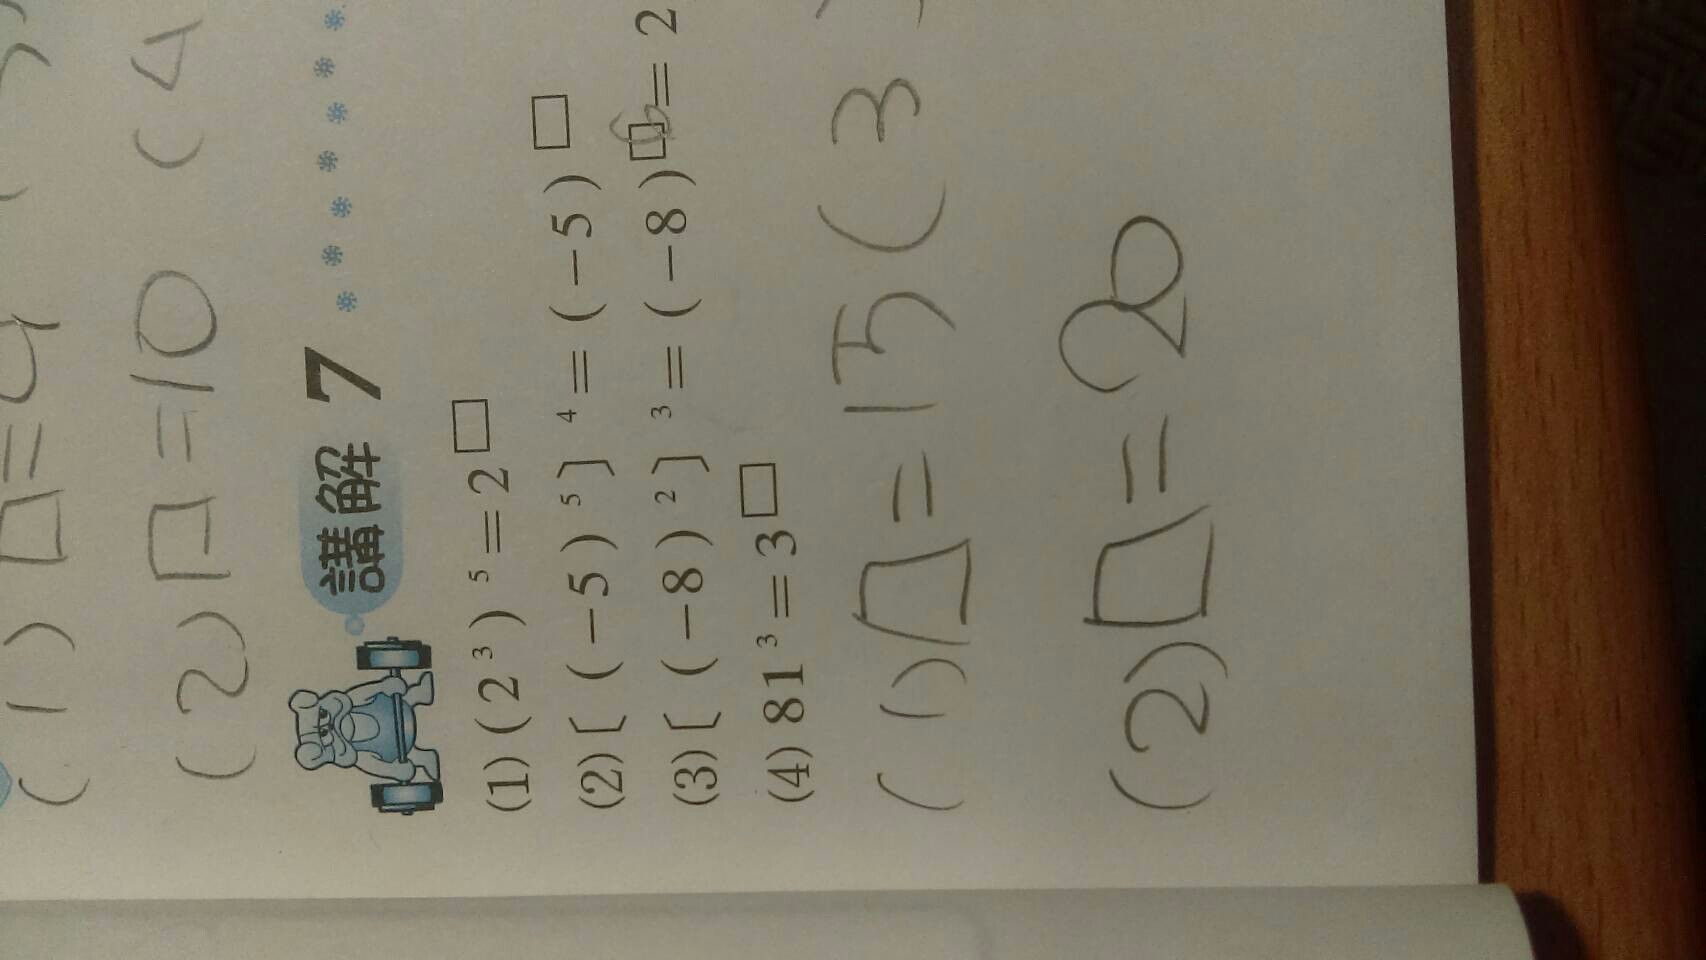 (1) □=4
(2) □=10 (4
講解 7
(1) (2³)⁵=2□
(2) [(-5)⁵]⁴=(-5)□
(3) [(-8)²]³=(-8)□6=2
(4) 81³=3□
(1) □=15 (3
(2) □=20